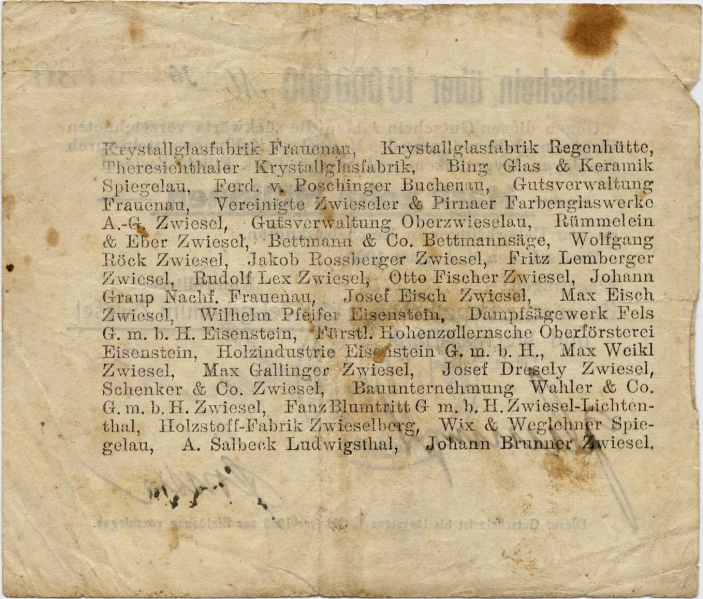 Krystallglasfabrik Frauenau, Krystallglasfabrik Regenhütte,
Theresienthaler Krystallglasfabrik, Bing Glas & Keramik
Spiegelau, Ferd. v. Poschinger Buchenau, Gutsverwaltung
Frauenau, Vereinigte Zwieseler & Pirnaer Farbenglaswerke
A.-G. Zwiesel, Gutsverwaltung Oberzwieselau, Rümmelein
& Eber Zwiesel, Bettmann & Co. Bettmannsäge, Wolfgang
Röck Zwiesel, Jakob Rossberger Zwiesel, Fritz Lemberger
Zwiesel, Rudolf Lex Zwiesel, Otto Fischer Zwiesel, Johann
Graup Nachf. Frauenau, Josef Eisch Zwiesel, Max Eisch
Zwiesel, Wilhelm Pfeifer Eisenstein, Dampfsägewerk Fels
G. m. b. H. Eisenstein, Fürstl. Hohenzollernsche Oberförsterei
Eisenstein, Holzindustrie Eisenstein G. m. b. H., Max Weikl
Zwiesel, Max Gallinger Zwiesel, Josef Dresely Zwiesel,
Schenker & Co. Zwiesel, Bauunternehmung Wahler & Co.
G. m. b. H. Zwiesel, Fanz Blumtritt G m. b. H. Zwiesel-Lichten-
thal, Holzstoff-Fabrik Zwieselberg, Wix & Weglehner Spie-
gelau, A. Salbeck Ludwigsthal, Johann Brunner Zwiesel.
Gutschein über 10000000 M